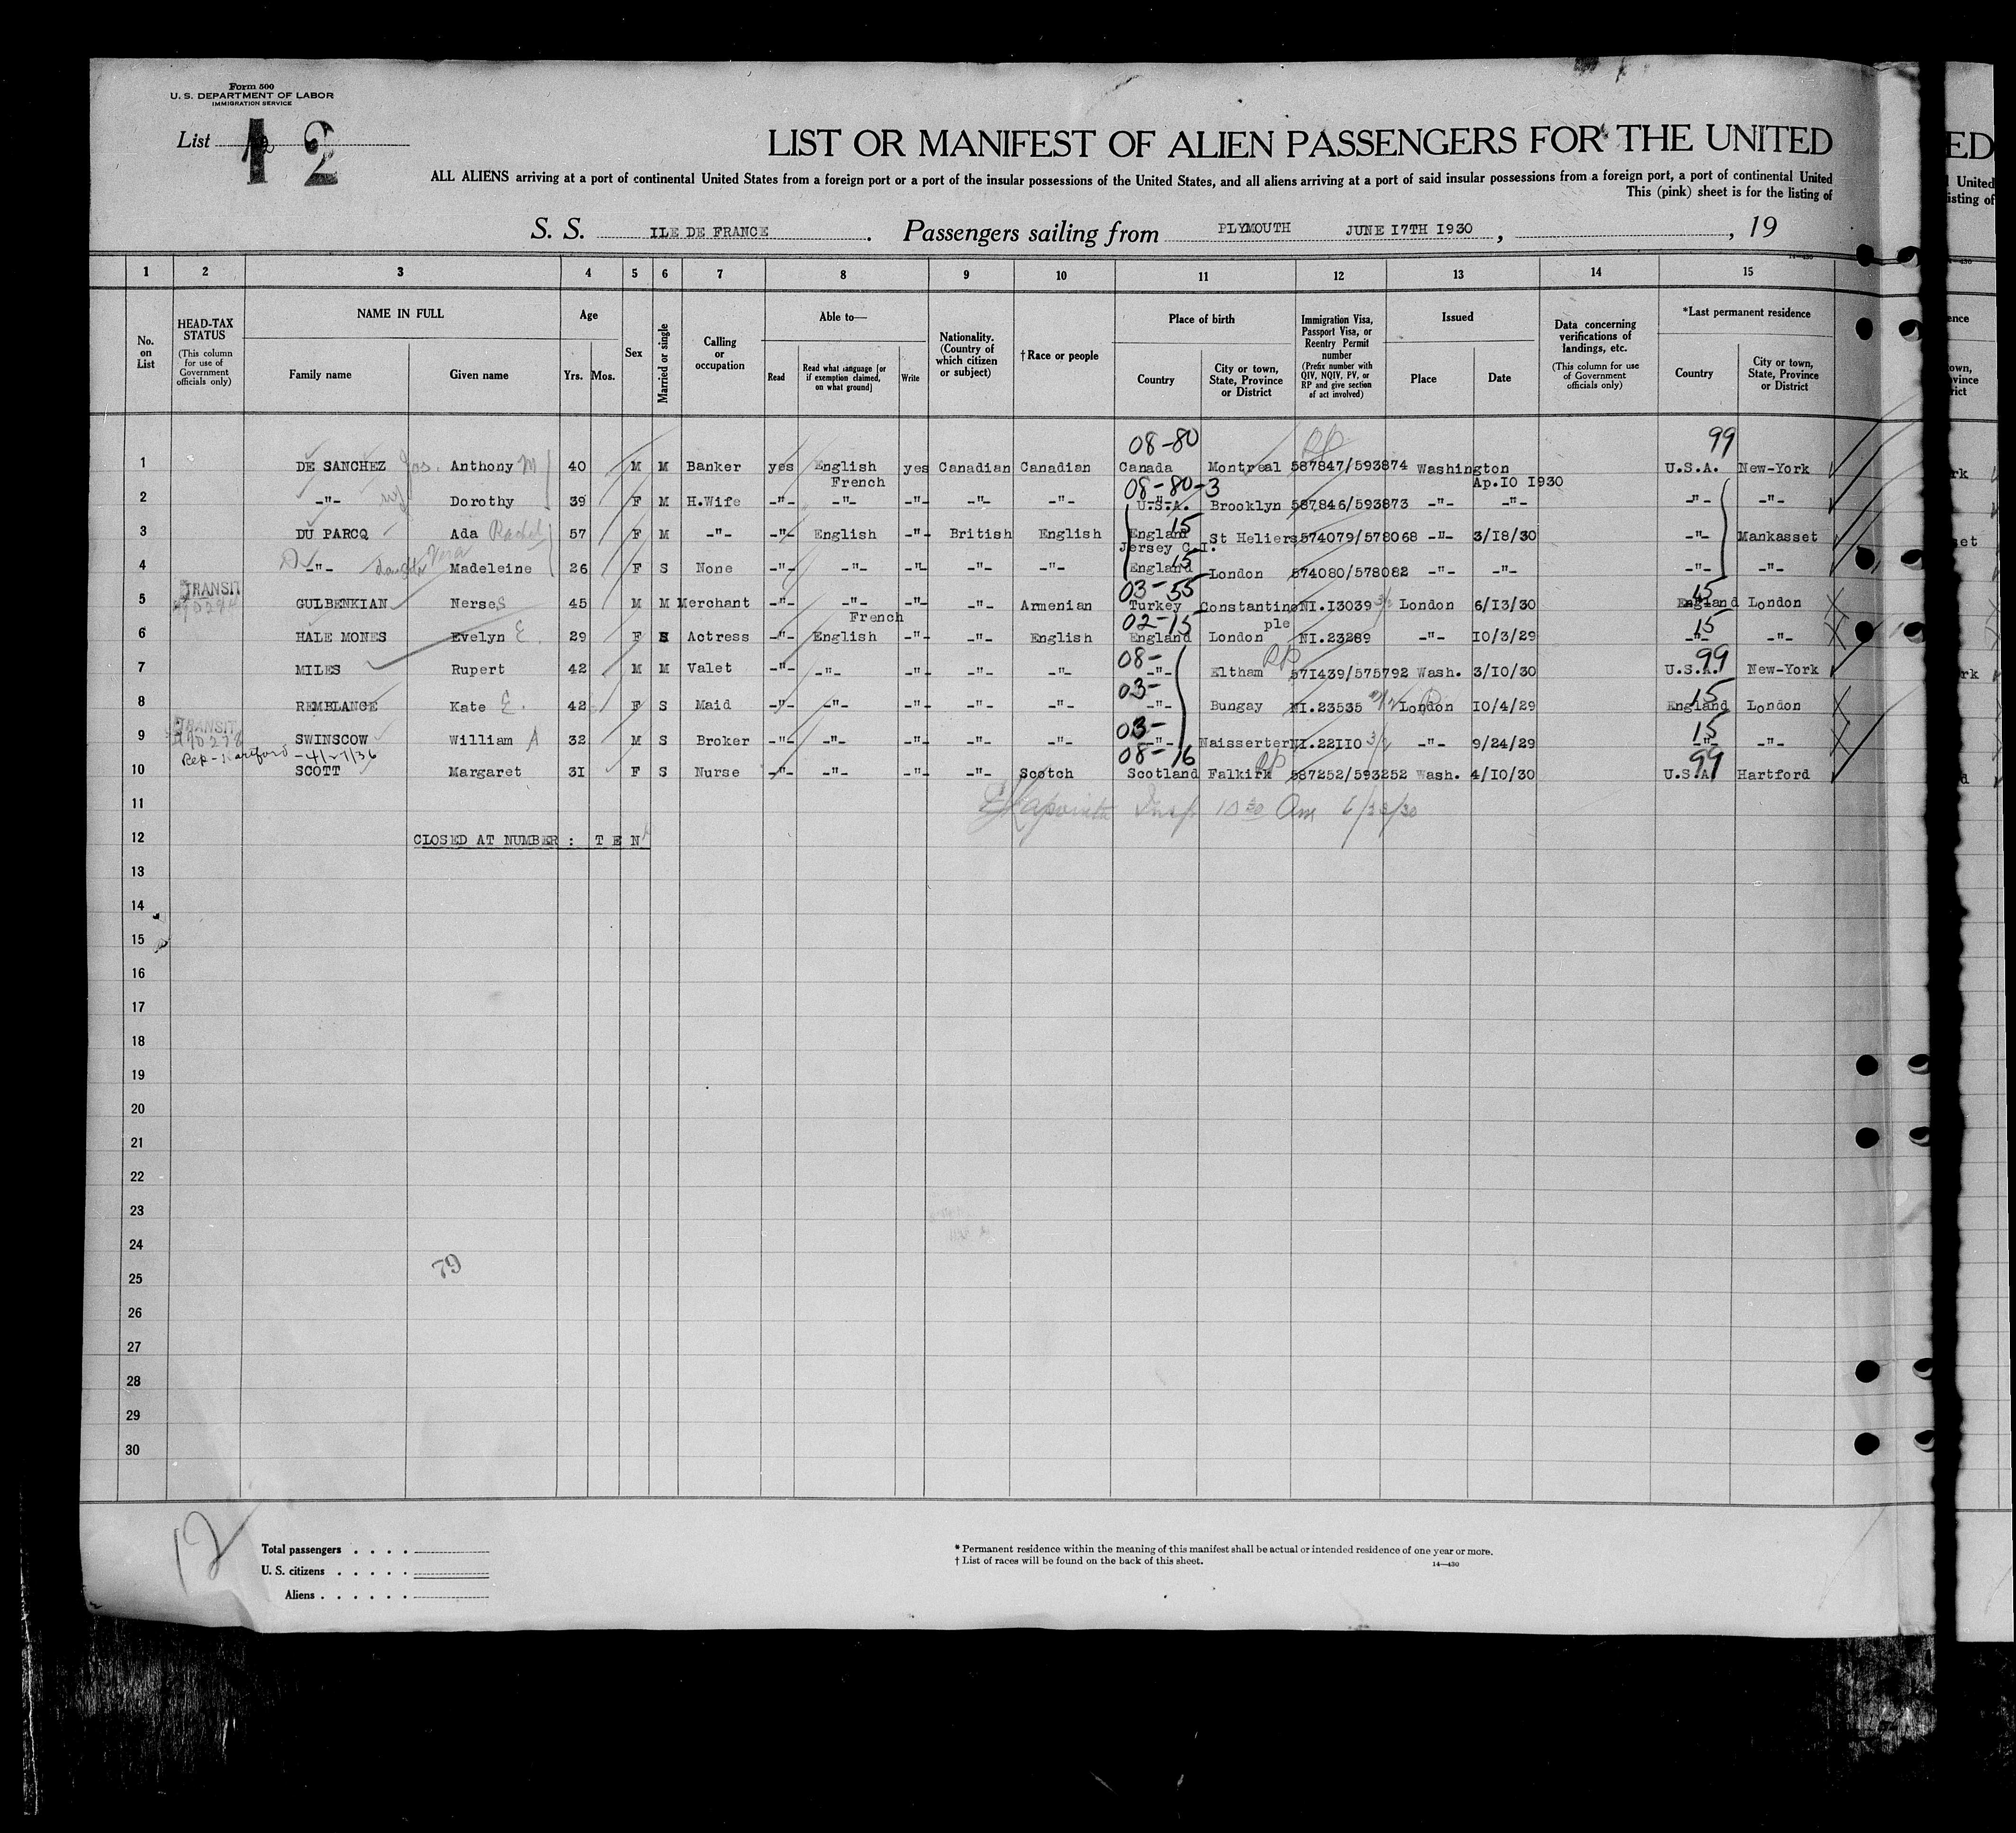 Form 500
U. S. DEPARTMENT OF LABOR
IMMIGRATION SERVICE
List 12
LIST OR MANIFEST OF ALIEN PASSENGERS FOR THE UNITED
ALL ALIENS arriving at a port of continental United States from a foreign port or a port of the insular possessions of the United States, and all aliens arriving at a port of said insular possessions from a foreign port, a port of continental United
This (pink) sheet is for the listing of
S. S. ILE DE FRANCE. Passengers sailing from PLYMOUTH JUNE I7TH I930, , 19
1 2 3 4 5 6 7 8 9 10 11 12 13 14 15
No. on List
HEAD-TAX STATUS (This column for use of Government officials only)
NAME IN FULL Family name Given name
Age Yrs. Mos.
Sex
Married or single
Calling or occupation
Able to— Read Read what language [or if exemption claimed, on what ground] Write
Nationality. (Country of which citizen or subject)
†Race or people
Place of birth Country City or town, State, Province or District
Immigration Visa, Passport Visa, or Reentry Permit number (Prefix number with QIV, NQIV, PV, or RP and give section of act involved)
Issued Place Date
Data concerning verifications of landings, etc. (This column for use of Government officials only)
*Last permanent residence Country City or town, State, Province or District
08-80 RP 99
1 DE SANCHEZ Jos. Anthony M 40 M M Banker yes English French yes Canadian Canadian Canada Montreal 587847/593874 Washington Ap.IO I930 U.S.A. New-York
08-80-3
2 -"- wf Dorothy 39 F M H.Wife -"- -"- -"- -"- -"- U.S.A. Brooklyn 587846/593873 -"- -"- -"- -"-
15
3 DU PARCQ Ada Rachel 57 F M -"- -"- English -"- British English England Jersey C.I. St Heliers 574079/578068 -"- 3/I8/30 -"- Mankasset
15
4 -"- daughter Vera Madeleine 26 F S None -"- -"- -"- -"- -"- England London 574080/578082 -"- -"- -"- -"-
TRANSIT 03-55 15
5 GULBENKIAN Nerses 45 M M Merchant -"- -"- French -"- -"- Armenian Turkey Constantinople NI.I3039 London 6/I3/30 England London
02-15 15
6 HALE MONES Evelyn E. 29 F S Actress -"- English -"- -"- English England London NI.23289 -"- IO/3/29 -"- -"-
08- RP 99
7 MILES Rupert 42 M M Valet -"- -"- -"- -"- -"- -"- Eltham 57I439/575792 Wash. 3/IO/30 U.S.A. New-York
03- 15
8 REMBLANCE Kate E. 42 F S Maid -"- -"- -"- -"- -"- -"- Bungay NI.23535 London IO/4/29 England London
TRANSIT 03- 15
9 SWINSCOW William A 32 M S Broker -"- -"- -"- -"- -"- -"- Naisserter NI.22IIO -"- 9/24/29 -"- -"-
Rep-Hartford -4/-7/36 08-16 RP 99
10 SCOTT Margaret 3I F S Nurse -"- -"- -"- -"- Scotch Scotland Falkirk 587252/593252 Wash. 4/IO/30 U.S.A. Hartford
11
12 CLOSED AT NUMBER : T E N
13
14
15
16
17
18
19
20
21
22
23
24
79
25
26
27
28
29
30
12
Total passengers . . . .
U. S. citizens . . . . .
Aliens . . . . . .
* Permanent residence within the meaning of this manifest shall be actual or intended residence of one year or more.
† List of races will be found on the back of this sheet. 14—430